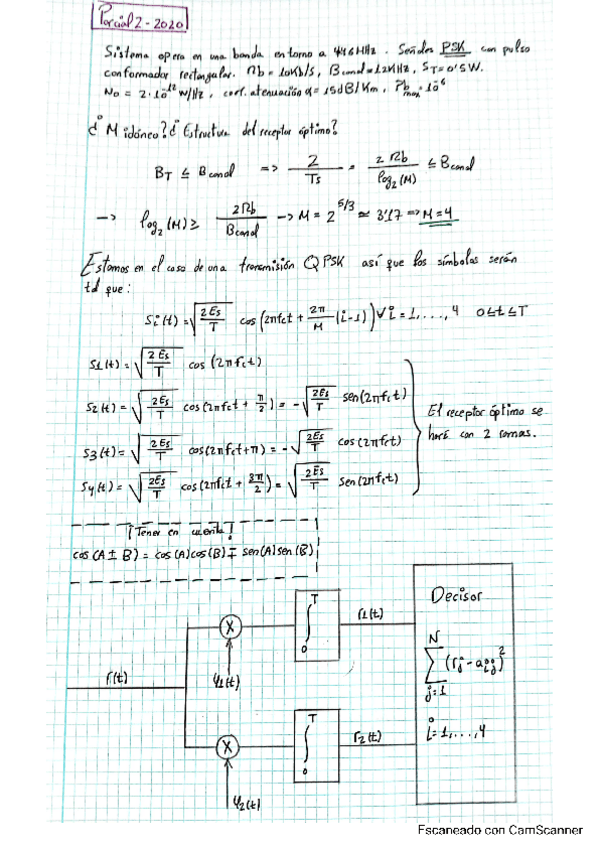 Parcial 2 - 2020
Sistema opera en una banda entorno a 446MHz. Señales PSK con pulso
conformador rectangular. Rb = 10Kb/s, Bcanal = 12KHz, ST = 0'5W.
No = 2·10^-12 W/Hz, coef. atenuación α = 15dB/Km, Pb max = 10^-6
¿M idóneo? ¿Estructura del receptor óptimo?
BT ≤ Bcanal => 2/Ts = 2Rb/log2(M) ≤ Bcanal
-> log2(M) ≥ 2Rb/Bcanal -> M = 2^5/3 ≃ 3'17 => M = 4
Estamos en el caso de una transmisión QPSK así que los símbolos serán
tal que:
Si(t) = √(2Es/T) cos(2πfct + 2π/M (i-1)) ∀ i = 1, ..., 4 0≤t≤T
S1(t) = √(2Es/T) cos(2πfct)
S2(t) = √(2Es/T) cos(2πfct + π/2) = -√(2Es/T) sen(2πfct)
S3(t) = √(2Es/T) cos(2πfct+π) = -√(2Es/T) cos(2πfct)
S4(t) = √(2Es/T) cos(2πfct + 3π/2) = √(2Es/T) sen(2πfct)
El receptor óptimo se
hará con 2 ramas.
¡Tener en cuenta!
cos(A±B) = cos(A)cos(B)∓sen(A)sen(B)
r(t)
X
φ1(t)
T
∫
0
r1(t)
X
φ2(t)
T
∫
0
r2(t)
Decisor
N
∑ (rj - aij)^2
j=1
i=1, ..., 4
Escaneado con CamScanner